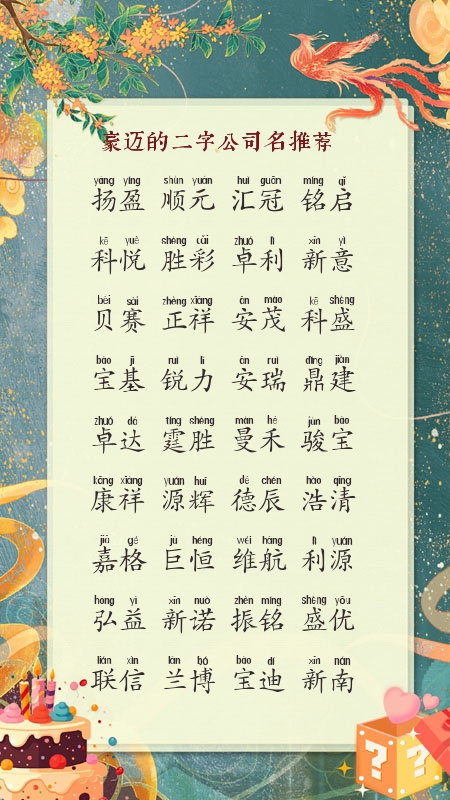 豪迈的二字公司名推荐
yáng yíng shùn yuán huì guān míng qǐ
扬盈 顺元 汇冠 铭启
kē yuè shèng cǎi zhuó lì xīn yì
科悦 胜彩 卓利 新意
bèi sài zhèng xiáng ān mào kē shéng
贝赛 正祥 安茂 科盛
bǎo jī ruì lì ān ruì dǐng jiàn
宝基 锐力 安瑞 鼎建
zhuó dá tíng shèng màn hé jùn bǎo
卓达 霆胜 曼禾 骏宝
kāng xiáng yuán huī dé chén hào qīng
康祥 源辉 德辰 浩清
jiā gé jù héng wéi háng lì yuán
嘉格 巨恒 维航 利源
hóng yì xīn nuò zhèn míng shéng yōu
弘益 新诺 振铭 盛优
lián xìn lán bó bǎo dí xīn nán
联信 兰博 宝迪 新南